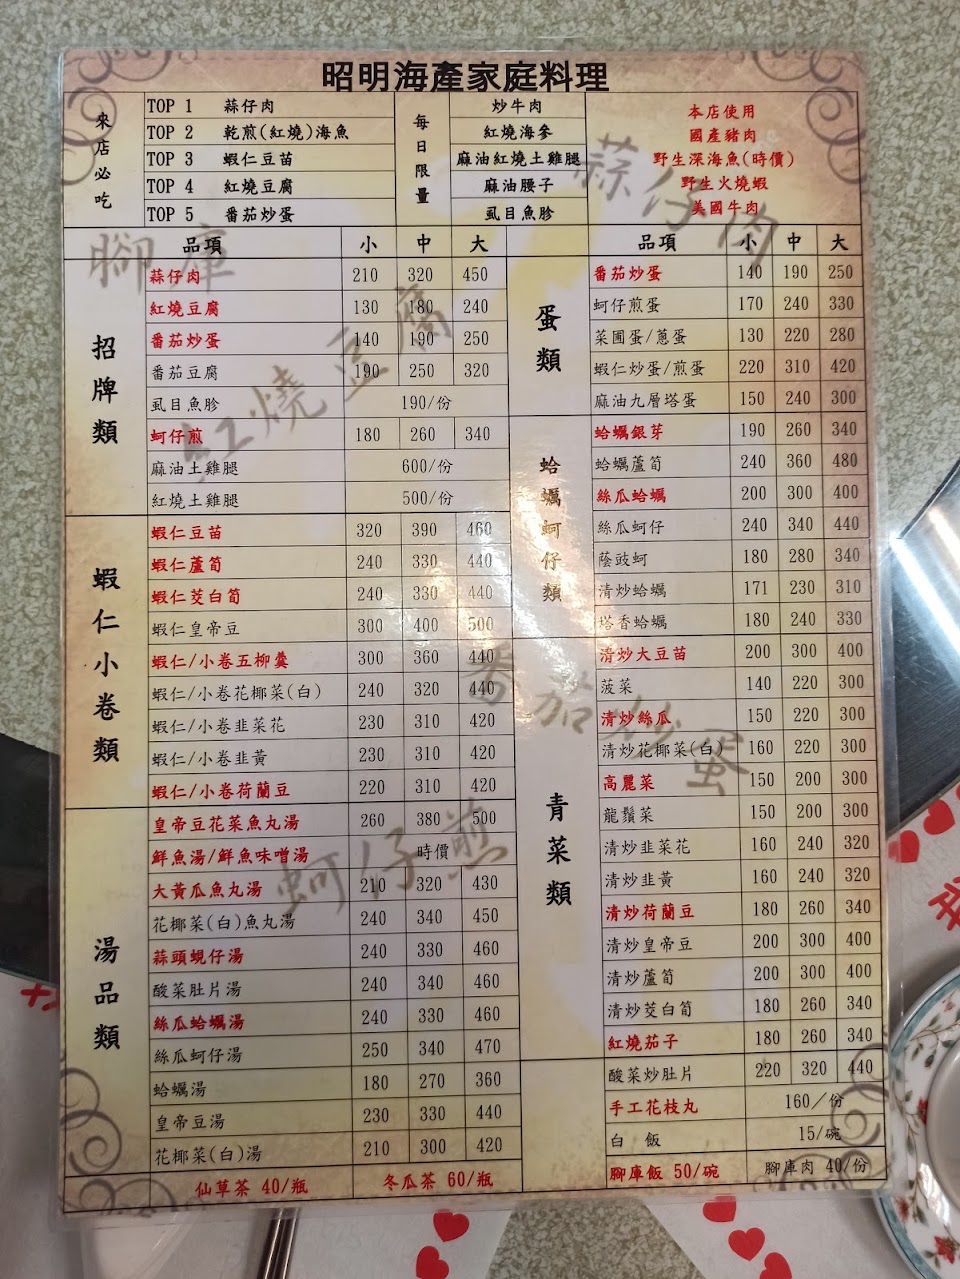 昭明海產家庭料理
來店必吃
TOP 1 蒜仔肉
TOP 2 乾煎(紅燒)海魚
TOP 3 蝦仁豆苗
TOP 4 紅燒豆腐
TOP 5 番茄炒蛋
每日限量
炒牛肉
紅燒海參
麻油紅燒土雞腿
麻油腰子
虱目魚胗
本店使用
國產豬肉
野生深海魚(時價)
野生火燒蝦
美國牛肉
品項 小 中 大
招牌類
蒜仔肉 210 320 450
紅燒豆腐 130 180 240
番茄炒蛋 140 190 250
番茄豆腐 190 250 320
虱目魚胗 190/份
蚵仔煎 180 260 340
麻油土雞腿 600/份
紅燒土雞腿 500/份
蝦仁小卷類
蝦仁豆苗 320 390 460
蝦仁蘆筍 240 330 440
蝦仁茭白筍 240 330 440
蝦仁皇帝豆 300 400 500
蝦仁/小卷五柳羹 300 360 440
蝦仁/小卷花椰菜(白) 240 320 440
蝦仁/小卷韭菜花 230 310 420
蝦仁/小卷韭黃 230 310 420
蝦仁/小卷荷蘭豆 220 310 420
湯品類
皇帝豆花菜魚丸湯 260 380 500
鮮魚湯/鮮魚味噌湯 時價
大黃瓜魚丸湯 210 320 430
花椰菜(白)魚丸湯 240 340 450
蒜頭蜆仔湯 240 330 460
酸菜肚片湯 240 340 460
絲瓜蛤蠣湯 240 330 460
絲瓜蚵仔湯 250 340 470
蛤蠣湯 180 270 360
皇帝豆湯 230 330 440
花椰菜(白)湯 210 300 420
仙草茶 40/瓶 冬瓜茶 60/瓶
品項 小 中 大
蛋類
番茄炒蛋 140 190 250
蚵仔煎蛋 170 240 330
菜圃蛋/蔥蛋 130 220 280
蝦仁炒蛋/煎蛋 220 310 420
麻油九層塔蛋 150 240 300
蛤蠣蚵仔類
蛤蠣銀芽 190 260 340
蛤蠣蘆筍 240 360 480
絲瓜蛤蠣 200 300 400
絲瓜蚵仔 240 340 440
蔭豉蚵 180 280 340
清炒蛤蠣 171 230 310
塔香蛤蠣 180 240 330
青菜類
清炒大豆苗 200 300 400
菠菜 140 220 300
清炒絲瓜 150 220 300
清炒花椰菜(白) 160 220 300
高麗菜 150 200 300
龍鬚菜 150 200 300
清炒韭菜花 160 240 320
清炒韭黃 160 240 320
清炒荷蘭豆 180 260 340
清炒皇帝豆 200 300 400
清炒蘆筍 200 300 400
清炒茭白筍 180 260 340
紅燒茄子 180 260 340
酸菜炒肚片 220 320 440
手工花枝丸 160/份
白 飯 15/碗
腳庫飯 50/碗 腳庫肉 40/份
蒜仔肉
腳庫
紅燒豆腐
番茄炒蛋
蚵仔煎